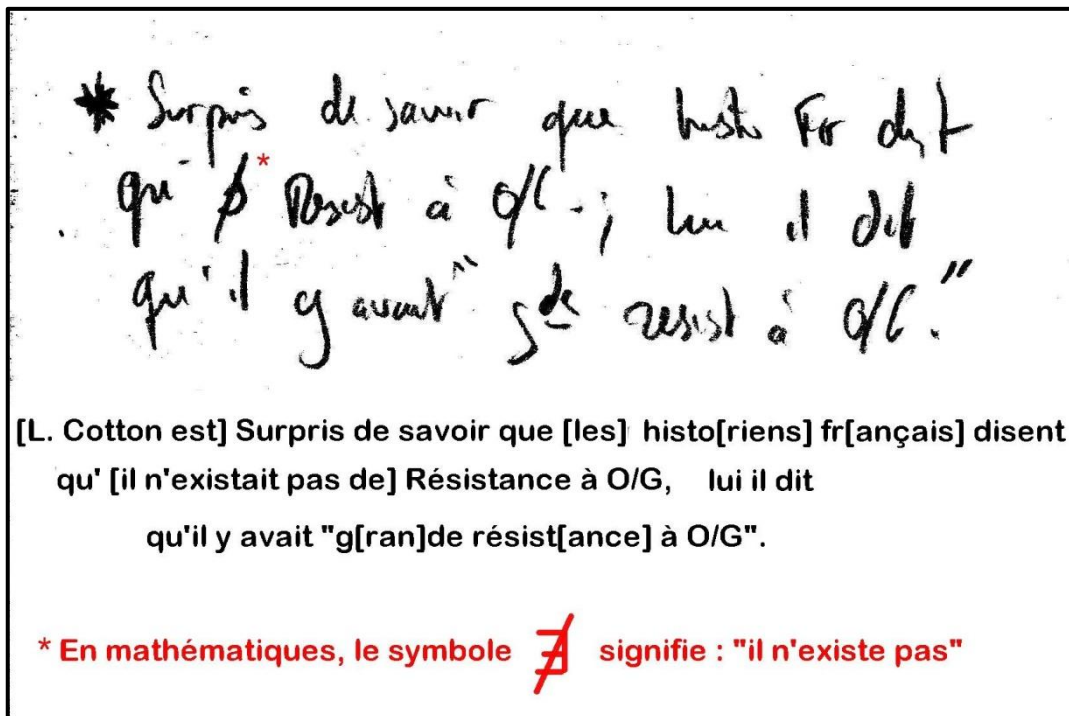 * Surpris de savoir que histo Fr dist
qu' ∄* Resist à O/G . ; lui il dit
qu'il y avait " gde resist à O/G . "
[L. Cotton est] Surpris de savoir que [les] histo[riens] fr[ançais] disent
qu' [il n'existait pas de] Résistance à O/G, lui il dit
qu'il y avait "g[ran]de résist[ance] à O/G".
* En mathématiques, le symbole ∄ signifie : "il n'existe pas"